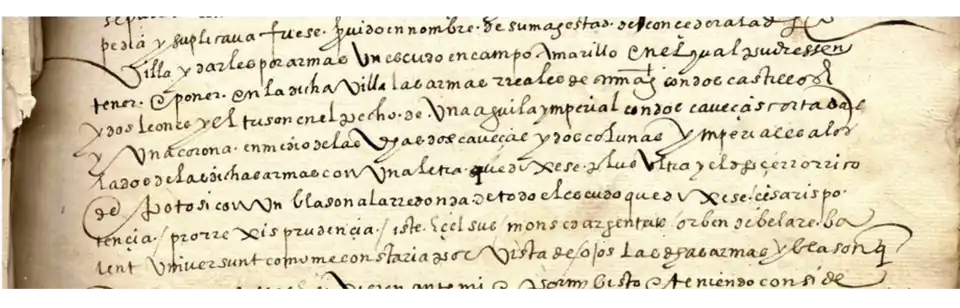 pedia y suplicava fuese. servido en nombre. de su magestad. de conceder a la d̃ha
Villa y darles por armas Un escudo en campo Amarillo en el qual pudiessen
tener. e poner. en la dicha Villa las armas rreales de su mag^t con dos castillos
y dos leones y el tuson en el pecho. de. Una aguila ymperial con dos caveças cortadas
y Una corona. en medio de las d̃has dos caveças y dos colunas ymperiales a los
lados de las dichas armas con Una letra. que dixese. plus Ultra y el d̃ho çerro rrico
de Potosi con Un blason a la rredonda. de todo el escudo que dixese. cesaris po
tencia / pro rrexis prudencia / iste. excelsus mons et argenteus / orben debelare. ba
lent Universunt como me constaria de Vista de ojos las d̃has armas y blason q̃
ante mi visto e teniendo conside